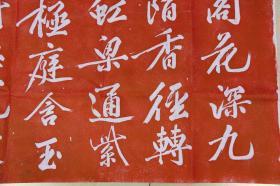 閣花深九
香徑轉
虹梁通紫
極庭含玉